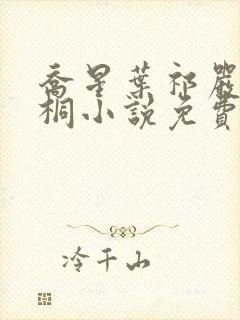 喬星葉祁嚴
桐小說免費
冷千山